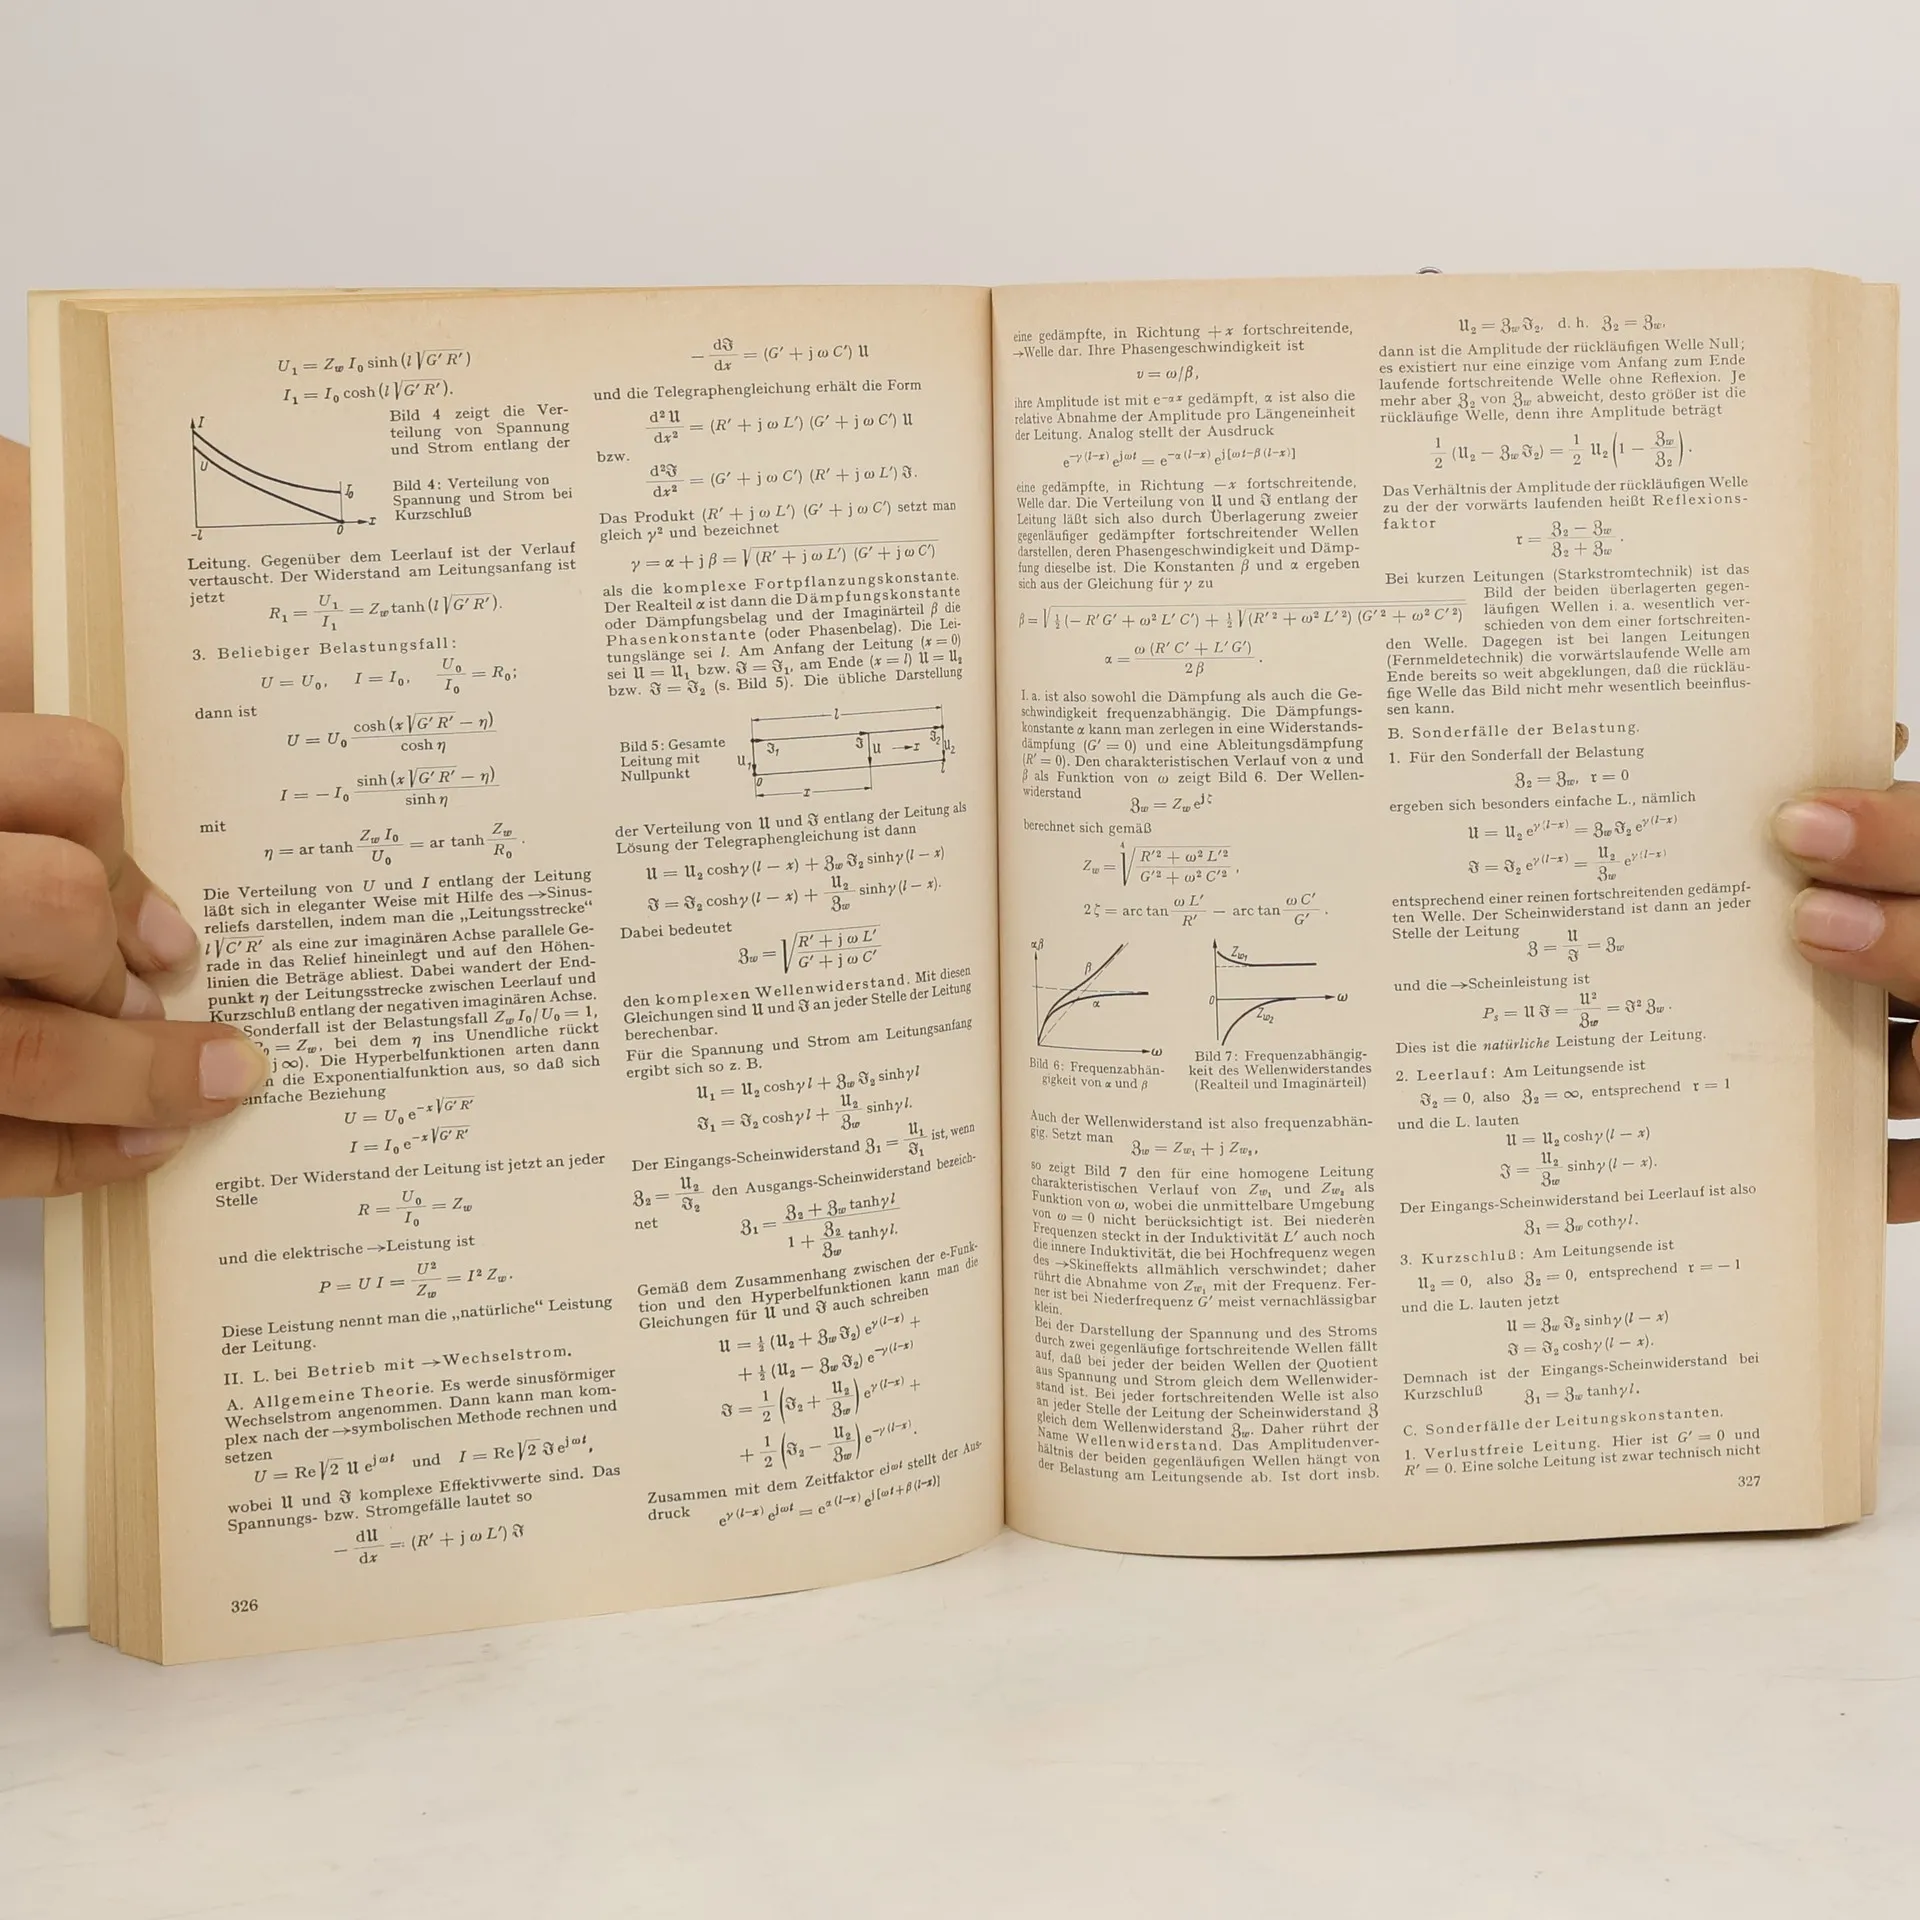 U₁ = Z_w I₀ sinh (l √G′ R′)
I₁ = I₀ cosh (l √G′ R′).
Bild 4 zeigt die Ver-
teilung von Spannung
und Strom entlang der
I
U
I₀
-l
0
x
Bild 4: Verteilung von
Spannung und Strom bei
Kurzschluß
Leitung. Gegenüber dem Leerlauf ist der Verlauf
vertauscht. Der Widerstand am Leitungsanfang ist
jetzt
R₁ = U₁/I₁ = Z_w tanh (l √G′ R′).
3. Beliebiger Belastungsfall:
U = U₀, I = I₀, U₀/I₀ = R₀;
dann ist
U = U₀ cosh (x √G′ R′ − η)/cosh η
I = − I₀ sinh (x √G′ R′ − η)/sinh η
mit
η = ar tanh Z_w I₀/U₀ = ar tanh Z_w/R₀.
Die Verteilung von U und I entlang der Leitung
läßt sich in eleganter Weise mit Hilfe des →Sinus-
reliefs darstellen, indem man die „Leitungsstrecke“
l √C′ R′ als eine zur imaginären Achse parallele Ge-
rade in das Relief hineinlegt und auf den Höhen-
linien die Beträge abliest. Dabei wandert der End-
punkt η der Leitungsstrecke zwischen Leerlauf und
Kurzschluß entlang der negativen imaginären Achse.
Sonderfall ist der Belastungsfall Z_w I₀/U₀ = 1,
= Z_w, bei dem η ins Unendliche rückt
j ∞). Die Hyperbelfunktionen arten dann
die Exponentialfunktion aus, so daß sich
einfache Beziehung
U = U₀ e^(−x√G′ R′)
I = I₀ e^(−x√G′ R′)
ergibt. Der Widerstand der Leitung ist jetzt an jeder
Stelle
R = U₀/I₀ = Z_w
und die elektrische →Leistung ist
P = U I = U²/Z_w = I² Z_w.
Diese Leistung nennt man die „natürliche“ Leistung
der Leitung.
II. L. bei Betrieb mit →Wechselstrom.
A. Allgemeine Theorie. Es werde sinusförmiger
Wechselstrom angenommen. Dann kann man kom-
plex nach der →symbolischen Methode rechnen und
setzen
U = Re √2 𝔘 e^(jωt) und I = Re √2 ℑ e^(jωt),
wobei 𝔘 und ℑ komplexe Effektivwerte sind. Das
Spannungs- bzw. Stromgefälle lautet so
− d𝔘/dx = (R′ + j ω L′) ℑ
326
− dℑ/dx = (G′ + j ω C′) 𝔘
und die Telegraphengleichung erhält die Form
d²𝔘/dx² = (R′ + j ω L′) (G′ + j ω C′) 𝔘
bzw.
d²ℑ/dx² = (G′ + j ω C′) (R′ + j ω L′) ℑ.
Das Produkt (R′ + j ω L′) (G′ + j ω C′) setzt man
gleich γ² und bezeichnet
γ = α + j β = √((R′ + j ω L′) (G′ + j ω C′))
als die komplexe Fortpflanzungskonstante.
Der Realteil α ist dann die Dämpfungskonstante
oder Dämpfungsbelag und der Imaginärteil β die
Phasenkonstante (oder Phasenbelag). Die Lei-
tungslänge sei l. Am Anfang der Leitung (x = 0)
sei 𝔘 = 𝔘₁ bzw. ℑ = ℑ₁, am Ende (x = l) 𝔘 = 𝔘₂
bzw. ℑ = ℑ₂ (s. Bild 5). Die übliche Darstellung
Bild 5: Gesamte
Leitung mit
Nullpunkt
l
𝔘₁ ℑ₁ ℑ 𝔘 →x ℑ₂ 𝔘₂
0 l
x
der Verteilung von 𝔘 und ℑ entlang der Leitung als
Lösung der Telegraphengleichung ist dann
𝔘 = 𝔘₂ cosh γ (l − x) + ℨ_w ℑ₂ sinh γ (l − x)
ℑ = ℑ₂ cosh γ (l − x) + 𝔘₂/ℨ_w sinh γ (l − x).
Dabei bedeutet
ℨ_w = √((R′ + j ω L′)/(G′ + j ω C′))
den komplexen Wellenwiderstand. Mit diesen
Gleichungen sind 𝔘 und ℑ an jeder Stelle der Leitung
berechenbar.
Für die Spannung und Strom am Leitungsanfang
ergibt sich so z. B.
𝔘₁ = 𝔘₂ cosh γ l + ℨ_w ℑ₂ sinh γ l
ℑ₁ = ℑ₂ cosh γ l + 𝔘₂/ℨ_w sinh γ l.
Der Eingangs-Scheinwiderstand ℨ₁ = 𝔘₁/ℑ₁ ist, wenn
ℨ₂ = 𝔘₂/ℑ₂ den Ausgangs-Scheinwiderstand bezeich-
net
ℨ₁ = (ℨ₂ + ℨ_w tanh γ l)/(1 + ℨ₂/ℨ_w tanh γ l).
Gemäß dem Zusammenhang zwischen der e-Funk-
tion und den Hyperbelfunktionen kann man die
Gleichungen für 𝔘 und ℑ auch schreiben
𝔘 = ½ (𝔘₂ + ℨ_w ℑ₂) e^(γ (l−x)) +
+ ½ (𝔘₂ − ℨ_w ℑ₂) e^(−γ (l−x))
ℑ = 1/2 (ℑ₂ + 𝔘₂/ℨ_w) e^(γ (l−x)) +
+ 1/2 (ℑ₂ − 𝔘₂/ℨ_w) e^(−γ (l−x)).
Zusammen mit dem Zeitfaktor e^(jωt) stellt der Aus-
druck e^(γ (l−x)) e^(jωt) = e^(α (l−x)) e^(j [ωt+β (l−x)])
eine gedämpfte, in Richtung + x fortschreitende,
→Welle dar. Ihre Phasengeschwindigkeit ist
v = ω/β,
ihre Amplitude ist mit e^(−αx) gedämpft, α ist also die
relative Abnahme der Amplitude pro Längeneinheit
der Leitung. Analog stellt der Ausdruck
e^(−γ (l−x)) e^(jωt) = e^(−α (l−x)) e^(j [ωt−β (l−x)])
eine gedämpfte, in Richtung −x fortschreitende,
Welle dar. Die Verteilung von 𝔘 und ℑ entlang der
Leitung läßt sich also durch Überlagerung zweier
gegenläufiger gedämpfter fortschreitender Wellen
darstellen, deren Phasengeschwindigkeit und Dämp-
fung dieselbe ist. Die Konstanten β und α ergeben
sich aus der Gleichung für γ zu
β = √(½ (− R′ G′ + ω² L′ C′) + ½ √((R′² + ω² L′²) (G′² + ω² C′²)))
α = ω (R′ C′ + L′ G′)/2 β.
I. a. ist also sowohl die Dämpfung als auch die Ge-
schwindigkeit frequenzabhängig. Die Dämpfungs-
konstante α kann man zerlegen in eine Widerstands-
dämpfung (G′ = 0) und eine Ableitungsdämpfung
(R′ = 0). Den charakteristischen Verlauf von α und
β als Funktion von ω zeigt Bild 6. Der Wellen-
widerstand
ℨ_w = Z_w e^(jζ)
berechnet sich gemäß
Z_w = ⁴√((R′² + ω² L′²)/(G′² + ω² C′²)),
2 ζ = arc tan ω L′/R′ − arc tan ω C′/G′.
α,β
β
α
ω
Bild 6: Frequenzabhän-
gigkeit von α und β
Z_w₁
0
ω
Z_w₂
Bild 7: Frequenzabhängig-
keit des Wellenwiderstandes
(Realteil und Imaginärteil)
Auch der Wellenwiderstand ist also frequenzabhän-
gig. Setzt man
ℨ_w = Z_w₁ + j Z_w₂,
so zeigt Bild 7 den für eine homogene Leitung
charakteristischen Verlauf von Z_w₁ und Z_w₂ als
Funktion von ω, wobei die unmittelbare Umgebung
von ω = 0 nicht berücksichtigt ist. Bei niederen
Frequenzen steckt in der Induktivität L′ auch noch
die innere Induktivität, die bei Hochfrequenz wegen
des →Skineffekts allmählich verschwindet; daher
rührt die Abnahme von Z_w₁ mit der Frequenz. Fer-
ner ist bei Niederfrequenz G′ meist vernachlässigbar
klein.
Bei der Darstellung der Spannung und des Stroms
durch zwei gegenläufige fortschreitende Wellen fällt
auf, daß bei jeder der beiden Wellen der Quotient
aus Spannung und Strom gleich dem Wellenwider-
stand ist. Bei jeder fortschreitenden Welle ist also
an jeder Stelle der Leitung der Scheinwiderstand ℨ
gleich dem Wellenwiderstand ℨ_w. Daher rührt der
Name Wellenwiderstand. Das Amplitudenver-
hältnis der beiden gegenläufigen Wellen hängt von
der Belastung am Leitungsende ab. Ist dort insb.
𝔘₂ = ℨ_w ℑ₂, d. h. ℨ₂ = ℨ_w,
dann ist die Amplitude der rückläufigen Welle Null;
es existiert nur eine einzige vom Anfang zum Ende
laufende fortschreitende Welle ohne Reflexion. Je
mehr aber ℨ₂ von ℨ_w abweicht, desto größer ist die
rückläufige Welle, denn ihre Amplitude beträgt
1/2 (𝔘₂ − ℨ_w ℑ₂) = 1/2 𝔘₂ (1 − ℨ_w/ℨ₂).
Das Verhältnis der Amplitude der rückläufigen Welle
zu der der vorwärts laufenden heißt Reflexions-
faktor
𝔯 = (ℨ₂ − ℨ_w)/(ℨ₂ + ℨ_w).
Bei kurzen Leitungen (Starkstromtechnik) ist das
Bild der beiden überlagerten gegen-
läufigen Wellen i. a. wesentlich ver-
schieden von dem einer fortschreiten-
den Welle. Dagegen ist bei langen Leitungen
(Fernmeldetechnik) die vorwärtslaufende Welle am
Ende bereits so weit abgeklungen, daß die rückläu-
fige Welle das Bild nicht mehr wesentlich beeinflus-
sen kann.
B. Sonderfälle der Belastung.
1. Für den Sonderfall der Belastung
ℨ₂ = ℨ_w, 𝔯 = 0
ergeben sich besonders einfache L., nämlich
𝔘 = 𝔘₂ e^(γ (l−x)) = ℨ_w ℑ₂ e^(γ (l−x))
ℑ = ℑ₂ e^(γ (l−x)) = 𝔘₂/ℨ_w e^(γ (l−x))
entsprechend einer reinen fortschreitenden gedämpf-
ten Welle. Der Scheinwiderstand ist dann an jeder
Stelle der Leitung
ℨ = 𝔘/ℑ = ℨ_w
und die →Scheinleistung ist
P_s = 𝔘 ℑ = 𝔘²/ℨ_w = ℑ² ℨ_w.
Dies ist die natürliche Leistung der Leitung.
2. Leerlauf: Am Leitungsende ist
ℑ₂ = 0, also ℨ₂ = ∞, entsprechend 𝔯 = 1
und die L. lauten
𝔘 = 𝔘₂ cosh γ (l − x)
ℑ = 𝔘₂/ℨ_w sinh γ (l − x).
Der Eingangs-Scheinwiderstand bei Leerlauf ist also
ℨ₁ = ℨ_w coth γ l.
3. Kurzschluß: Am Leitungsende ist
𝔘₂ = 0, also ℨ₂ = 0, entsprechend 𝔯 = − 1
und die L. lauten jetzt
𝔘 = ℨ_w ℑ₂ sinh γ (l − x)
ℑ = ℑ₂ cosh γ (l − x).
Demnach ist der Eingangs-Scheinwiderstand bei
Kurzschluß ℨ₁ = ℨ_w tanh γ l.
C. Sonderfälle der Leitungskonstanten.
1. Verlustfreie Leitung. Hier ist G′ = 0 und
R′ = 0. Eine solche Leitung ist zwar technisch nicht
327